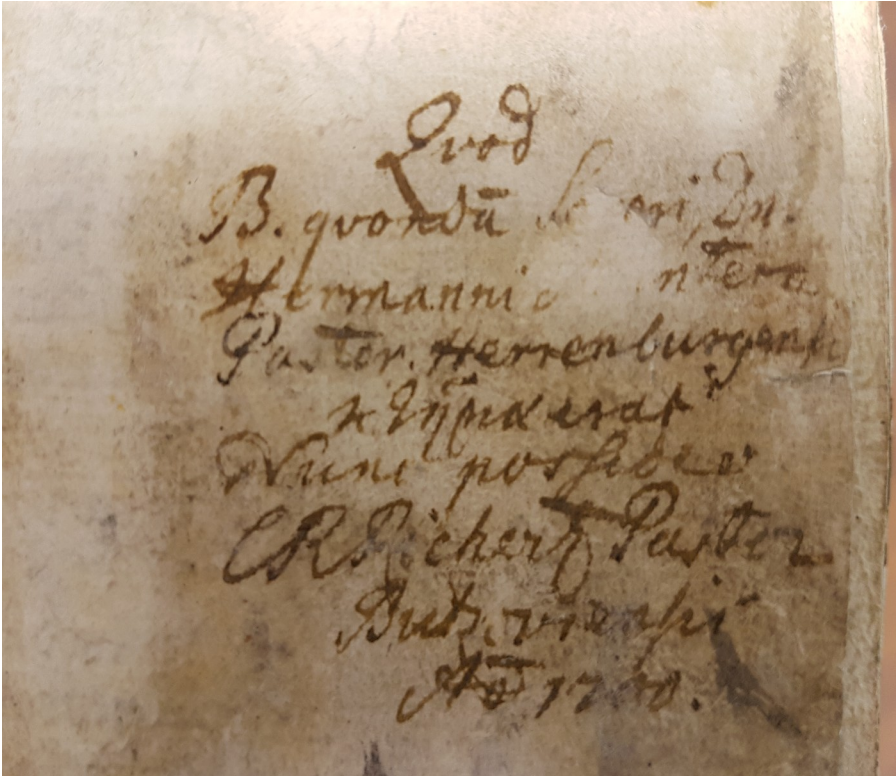 Qvod
B. qvondā Dn.
Hermanni
Pastor. Herrenburgensi
erat
Nunc possideo
CR Richertz Pastor
Butzoviensis
Aō 1700.